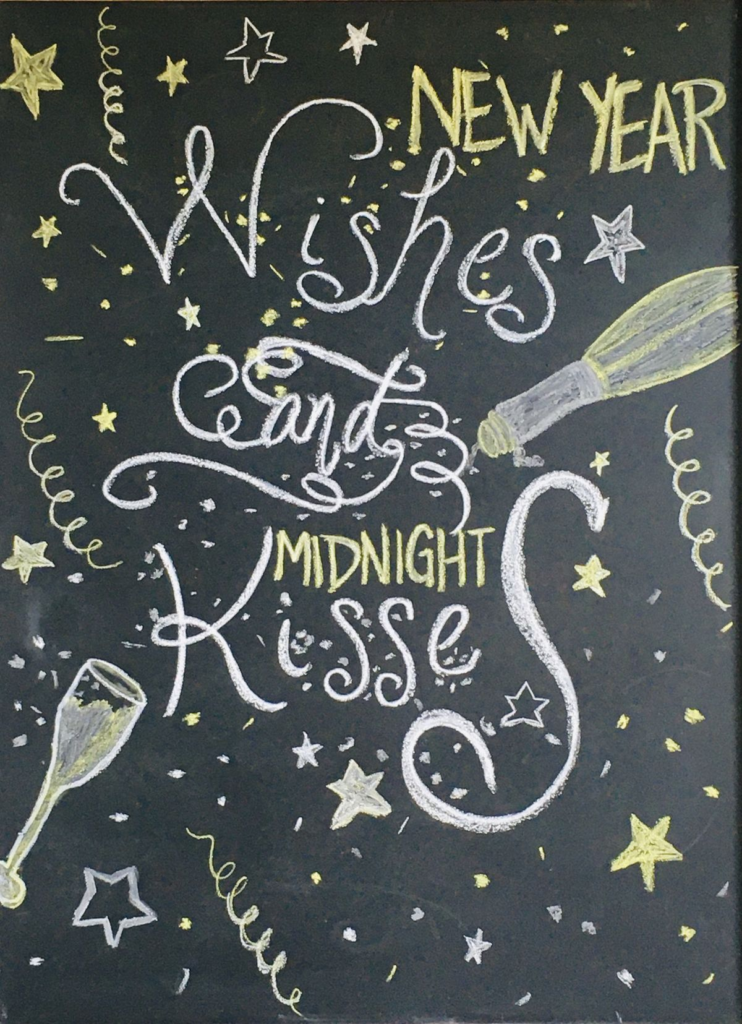 NEW YEAR
Wishes
and
MIDNIGHT
KisseS